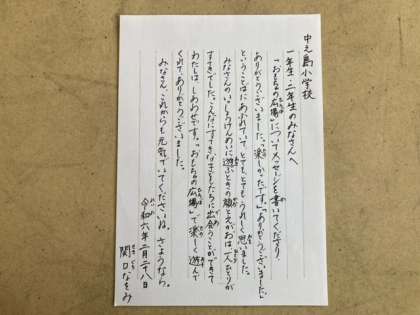 中之島小学校
一年生・二年生のみなさんへ
「おもちゃの広場」についてメッセージを書いてくださり、
ありがとうございました。「楽しかったです。」「ありがとうございました。」
ということばにあふれていて、とても、とてもうれしく思いました。
みなさんのいっしょうけんめいに遊ぶときの顔とえがおは、一人ひとりが
すてきでした。こんなにすてきな子どもたちに出会うことができて
わたしは、しあわせです。「おもちゃの広場」で楽しく遊んで
くれて、ありがとうございました。
みなさん、これからも元気でいてくださいね。さようなら。
令和六年二月二十八日
関口なをみ